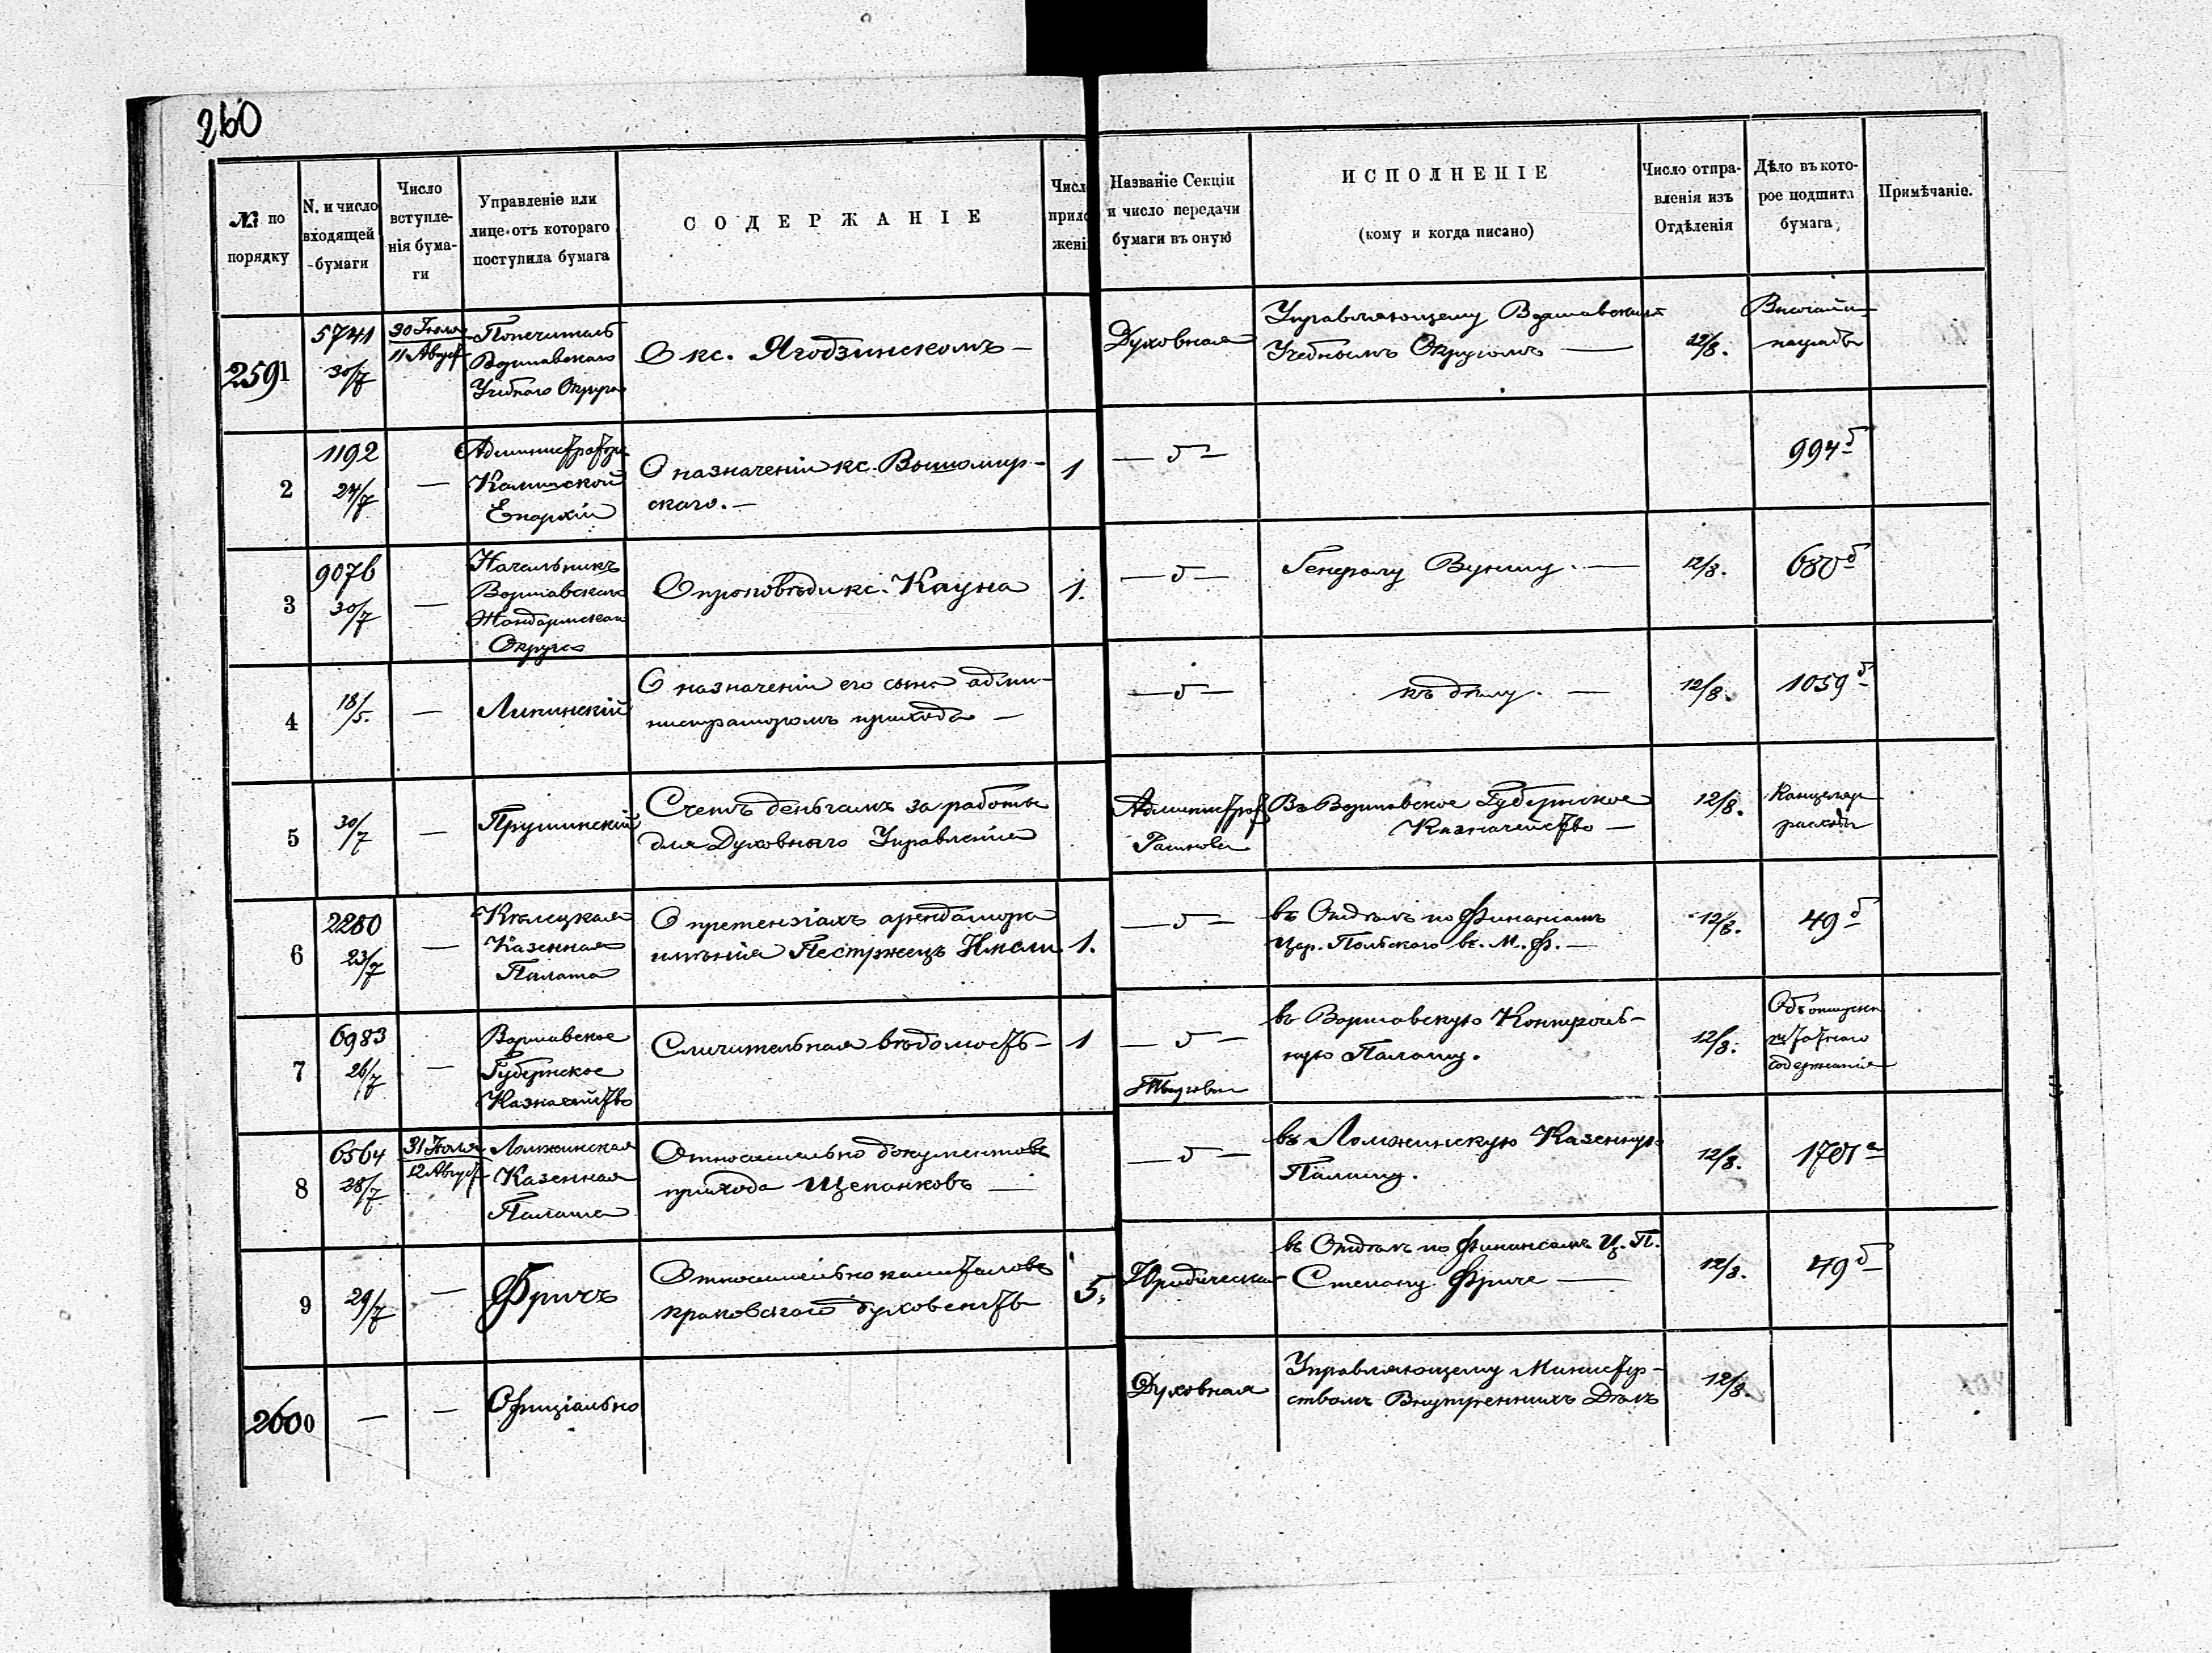 260
№ по порядку
N. и число входящей бумаги
Число вступленія бумаги
Управленіе или лице отъ котораго поступила бумага
СОДЕРЖАНІЕ
Числ прило жені
Названіе Секціи и число передачи бумаги въ оную
ИСПОЛНЕНІЕ
(кому и когда писано)
Число отправленія изъ Отдѣленія
Дѣло въ которое подшита бумага
Примѣчаніе.
2591
5741
30/7
30 Іюля
11 Август
Попечитель
Варшавскаго
Учебнаго Округа
О кс. Ягодзинскомъ —
Духовная
Управляющему Варшавскимъ
Учебнымъ Округомъ —
12/8.
2
1192
24/7
—
Администраторъ
Калишской
Епархіи
О назначеніи кс.
скаго. —
1
— " —
994 б
3
9076
30/7
—
Начальникъ
Варшавскаго
Жандармскаго
Округа
О проповѣди кс. Кауна
1.
— " —
Генералу —
12/8.
680 б
4
18/5.
—
Липинскій
О назначеніи его сына адми-
нистраторомъ прихода —
— " —
къ дѣлу. —
12/8.
1059 б
5
30/7
—
Прушинскій
Счетъ деньгамъ за работы
для Духовнаго Управленія
Администрат
Въ Варшавское Губернское
Казначейство —
12/8.
Канцеляр
расходы
6
2280
23/7
—
Кѣлецкая
Казенная
Палата
О претензіяхъ арендатора
имѣнія Пестржецъ
1.
— " —
въ Отдѣлъ по Финансамъ
Цар. Польскаго в. М. Ф. —
12/8.
49 б
7
6983
26/7
—
Варшавское
Губернское
Казначейство
Сличительная вѣдомость —
1
— " —
въ Варшавскую Контроль-
ную Палату.
12/8.
штатнаго
содержанія
8
6564
28/7
31 Іюля
12 Август
Ломжинская
Казенная
Палата
Относительно документовъ
прихода Щепанковъ —
— " —
въ Ломжинскую Казенную
Палату.
12/8.
1701 а
9
29/7
—
Фричъ
Относительно капиталовъ
краковскаго духовенства
5.
Юридическая
въ Отдѣлъ по Финансамъ Ц. П.
Степану Фриче —
12/8.
49 б
2600
—
—
Офиціально
Духовная
Управляющему Министер-
ствомъ Внутреннихъ Дѣлъ
12/8